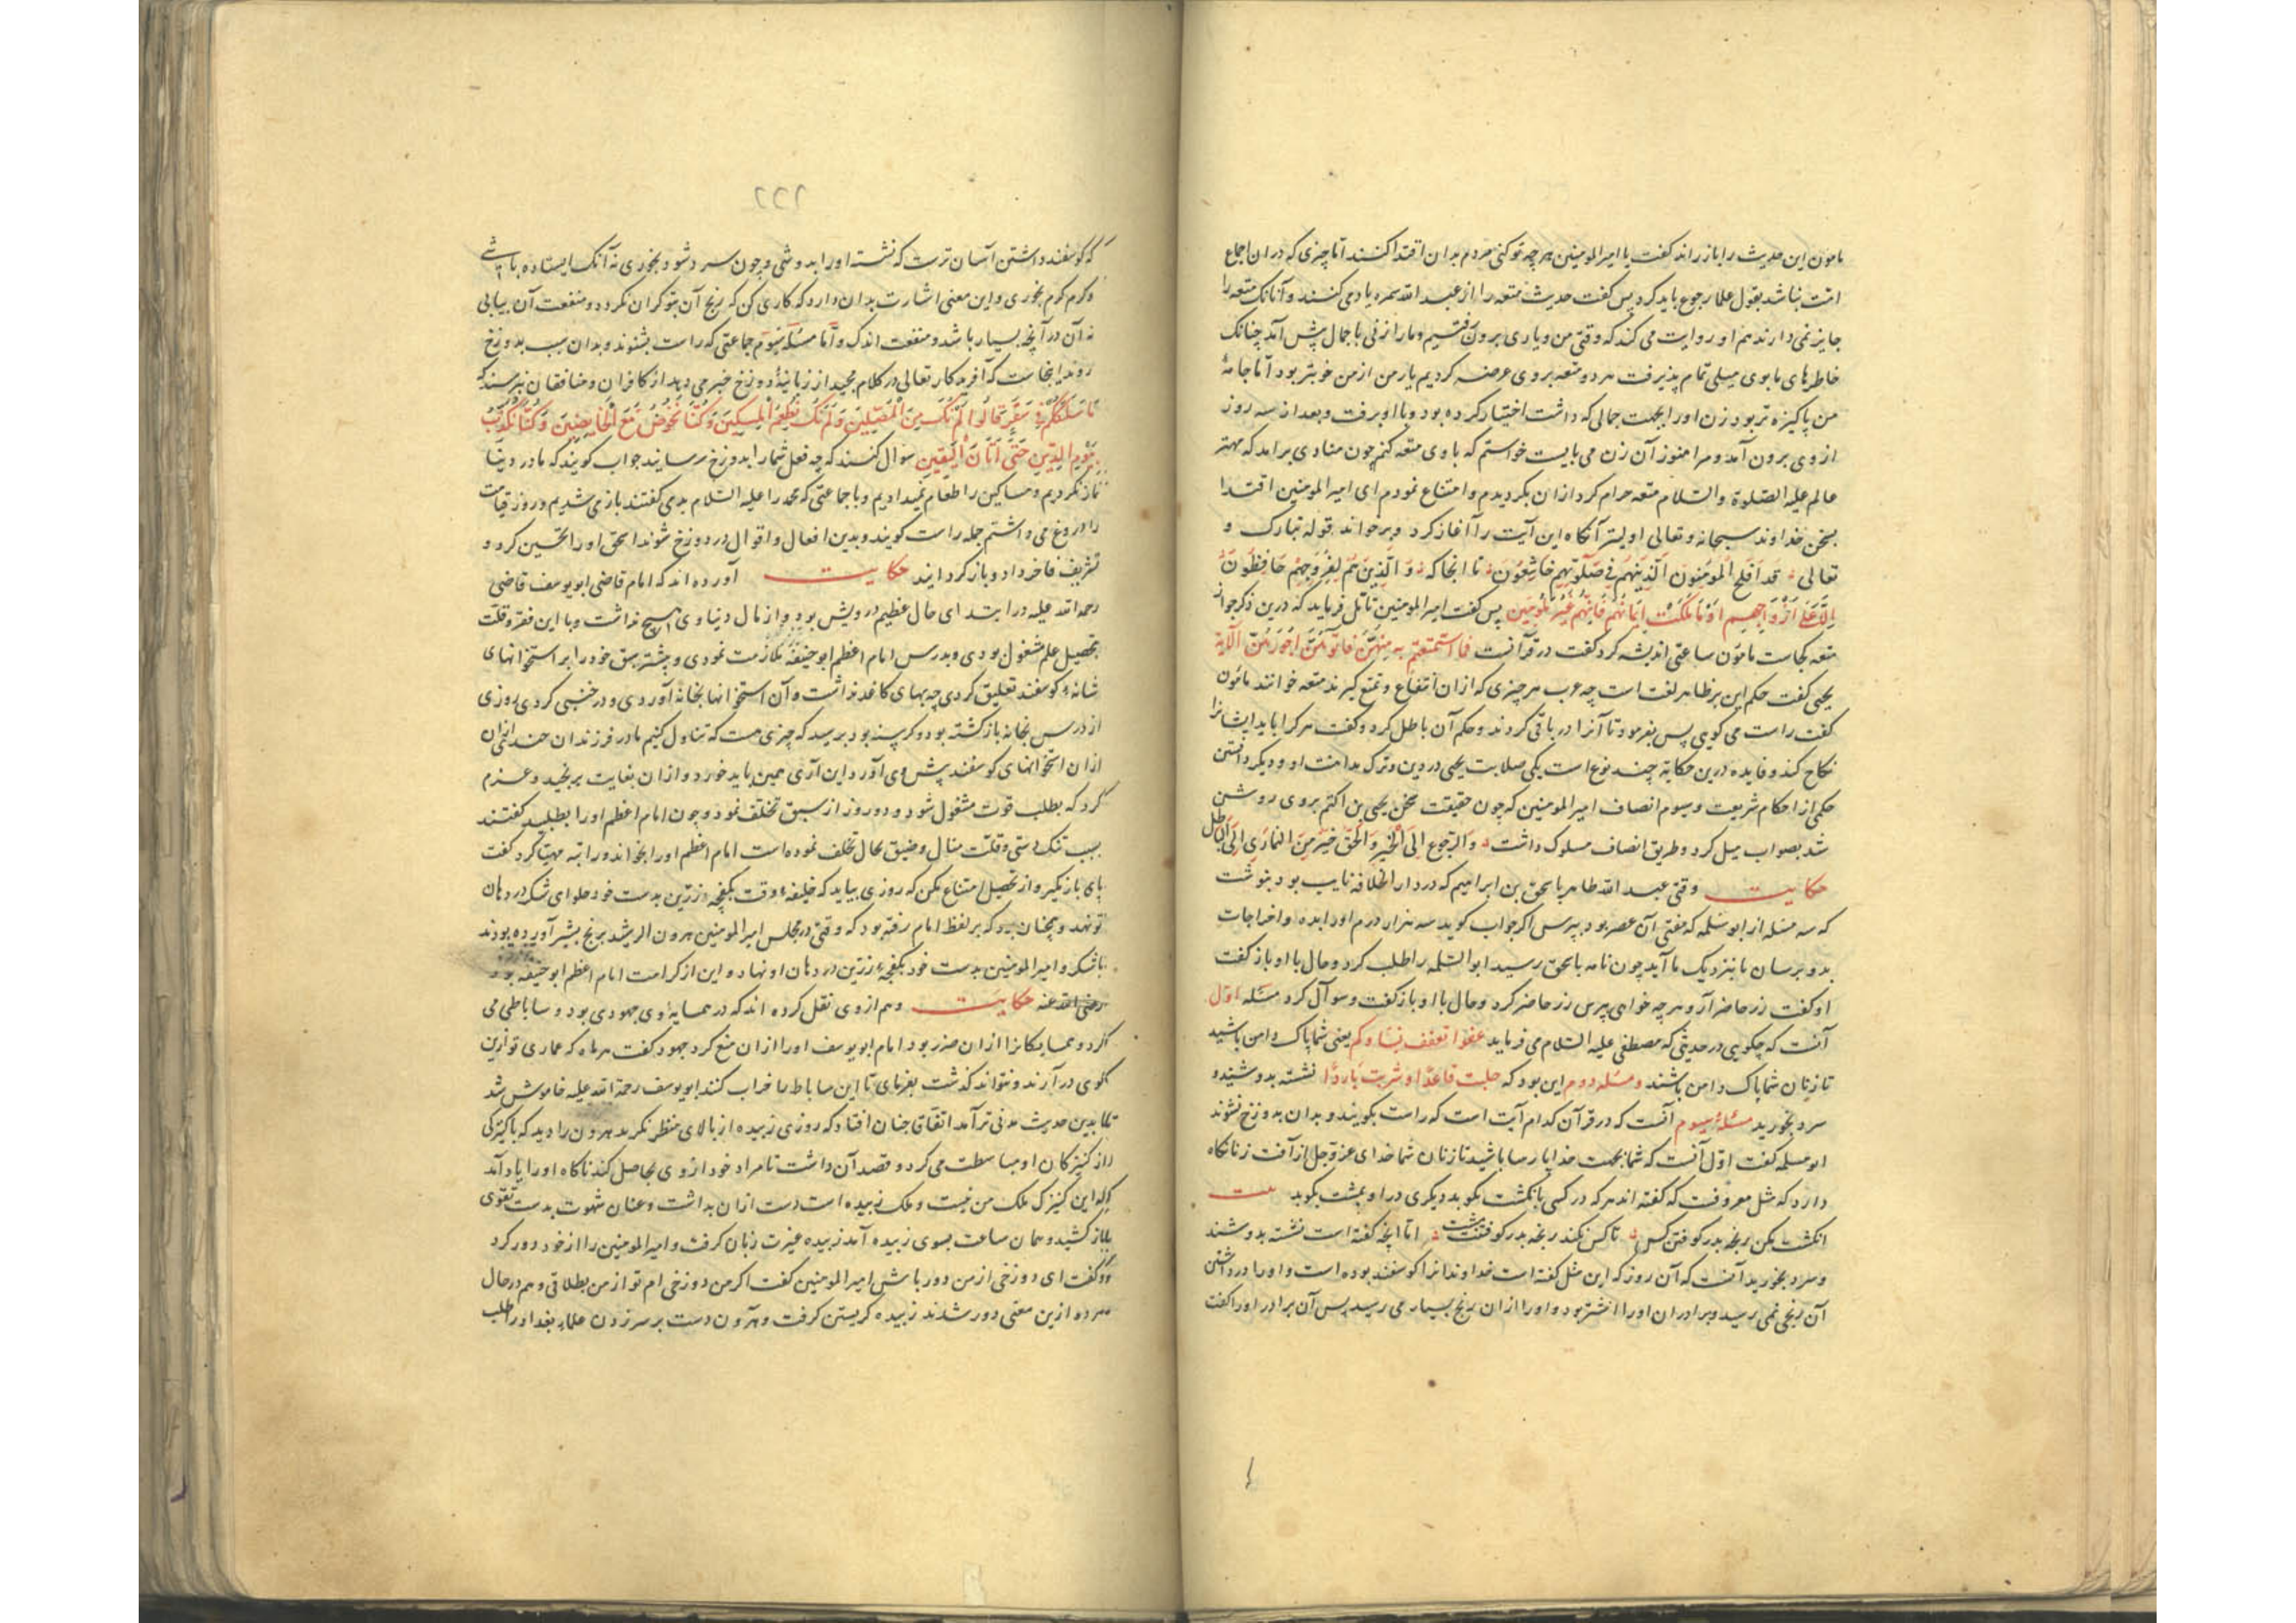 مامون این حدیث را باز راند گفت یا امیر المومنین هر چه تو کنی مردم بدان اقتدا کنند اما چیزی که در ان اجماع
امت نباشد بقول علما رجوع باید کرد پس گفت حدیث متعه را از عبد الله سمره یاد می کنند و آنانک متعه را
جایز نمی دارند هم او روایت می کند که وقتی من و یاری برون رفتیم و ما را زنی با جمال پیش آمد چنانک
خاطرهای ما بوی میلی تمام پذیرفت هر دو متعه بروی عرضه کردیم یار من از من خوبتر بود اما جامهٔ
من پاکیزه تر بود زن او را بجهت جمالی که داشت اختیار کرده بود و با او برفت و بعد از سه روز
از وی برون آمد و مرا هنوز آن زن می بایست خواستم که با وی متعه کنم چون منادی برامد که مهتر
عالم علیه الصلوة والسلام متعه حرام کرد ازان بگردیدم و امتناع نمودم ای امیر المومنین اقتدا
بسخن خداوند سبحانه و تعالی اولیتر آنکاه این آیت را آغاز کرد و برخواند قوله تبارک و
تعالی قد افلح المومنون الذین هم فی صلوتهم خاشعون تا انجا که والذین هم لفروجهم حافظون
الا علی ازواجهم او ما ملکت ایمانهم فانهم غیر ملومین پس گفت امیر المومنین تامل فرماید که درین ذکر جواز
متعه کجاست مامون ساعتی اندیشه کرد گفت در قرآنست فما استمتعتم به منهن فاتوهن اجورهن الآیة
یحیی گفت حکم این بر ظاهر لغت است چه عرب هر چیزی که ازان انتفاع و تمتع گیرند متعه خوانند مامون
گفت راست می گویی پس بفرمود تا آنرا در باقی کردند و حکم آن باطل کرد و گفت هر کرا باید ایشانرا
نکاح کند و فایده درین حکایة چند نوع است یکی صلابت یحیی در دین و ترک مداهنت او و دیگر دانستن
حکمی از احکام شریعت و سیوم انصاف امیر المومنین که چون حقیقت سخن یحیی بن اکثم بروی روشن
شد بصواب میل کرد و طریق انصاف مسلوک داشت و الرجوع الی الخیر والحق خیر من التماری الی الباطل
حکایت وقتی عبد الله طاهر باسحق بن ابراهیم که در دار الخلافه نایب بود بنوشت
که سه مسئله از ابو سلمه که مفتی آن عصر بود بپرس اکر جواب کوید سه هزار درم او را بده و اخراجات
بدو برسان تا بنزدیک ما آید چون نامه باسحق رسید ابو السلمه را طلب کرد و حال با او باز گفت
او گفت زر حاضر آر و هر چه خواهی بپرس زر حاضر کرد و حال با او باز گفت و سوآل کرد مسئله اول
آنست که چکویی در حدیثی که مصطفی علیه السلام می فرماید عفوا تعفف نساوکم یعنی شما پاک دامن باشید
تا زنان شما پاک دامن باشند و مسئله دوم این بود که حلبت قاعدا و شربت باردا نشسته بدوشید و
سرد بخورید مسئلهٔ سیوم آنست که در قرآن کدام آیت است که راست بکویند و بدان بدوزخ شوند
ابو سلمه گفت اول آنست که شما بجهت خدا پارسا باشید تا زنان شما خدای عز و جل از آفت زنا نگاه
دارد که مثل معروفست که گفته اند هر که در کسی بانگشت بکوبد دیگری در او بمشت بکوبد بیت
انگشت مکن رنجه بدر کوفتن کس تا کس نکند رنجه بدر کوفتنت مشت اما انچه گفته است نشسته بدوشند
و سرد بخورید آنست که آن روز که این مثل گفته است خداوند انرا گوسفند بوده است و او را در داشتن
آن رنجی نمی رسید و برادران او را اشتر بود و او را ازان رنج بسیار می رسید پس آن برادر او را گفت
٢٢١
که گوسفند داشتن آسان ترست که نشسته او را بدوشی و چون سرد شود بخوری نه آنک ایستاده باشی
و گرم گرم بخوری و این معنی اشارت بدان دارد که کاری کن که رنج آن بتو گران نگردد و منفعت آن بیابی
نه آن در آنچه بسیار باشد و منفعت اندک و اما مسئله سیوم جماعتی که راست بشنوند و بدان سبب بدوزخ
روند اینجاست که آفریدکار تعالی در کلام مجید از زبانیهٔ دوزخ خبر می دهد از کافران و منافقان بپرسند که
ما سلککم فی سقر قالوا لم نک من المصلین و لم نک نطعم المسکین و کنا نخوض مع الخایضین و کنا نکذب
بیوم الدین حتی اتانا الیقین سوآل کنند که چه فعل شما را بدوزخ رسانید جواب کویند که ما در دنیا
نماز نکردیم و مساکین را طعام نمیدادیم و با جماعتی که محمد را علیه السلام بدی گفتند بازی شدیم و روز قیامت
را دروغ می داشتم جمله راست کویند و بدین افعال و اقوال در دوزخ شوند اسحق او را تحسین کرد و
تشریف فاخر داد و باز کردانید حکایت آورده اند که امام قاضی ابو یوسف قاضی
رحمه الله علیه در ابتدای حال عظیم درویش بود و از مال دنیاوی هیچ نداشت و با این فقر و قلت
بتحصیل علم مشغول بودی و بدرس امام اعظم ابو حنیفه ملازمت نمودی و بیشتر سبق خود را بر استخوانهای
شانهٔ گوسفند تعلیق کردی چه بهای کاغذ نداشت و آن استخوانها بخانه آوردی و در خنبی کردی روزی
از درس بخانه باز کشته بود و گرسنه بود بپرسید که چیزی هست که تناول کنیم مادر فرزندان
ازان استخوانهای گوسفند پیش وی آورد این آری همین باید خورد و ازان بغایت برنجید و عزم
کرد که بطلب قوت مشغول شود و دو روز از سبق تخلف نمود و چون امام اعظم او را بطلبید گفتند
بسبب تنک دستی و قلت منال و ضیق حال تخلف نموده است امام اعظم او را بخواند و راتبه مهیا کرد گفت
پای باز مگیر و از تحصیل امتناع مکن که روزی بیاید که خلیفهٔ وقت بکفچهٔ زرین بدست خود حلوای شکر در دهان
تو نهد و همچنان بود که بر لفظ امام رفته بود که وقتی در مجلس امیر المومنین هرون الرشید برنج بشیر آورده بودند
با شکر و امیر المومنین بدست خود بکفچهٔ زرین در دهان او نهاد و این از کرامت امام اعظم ابو حنیفه بود
رضی الله عنه حکایت و هم از وی نقل کرده اند که در همسایهٔ وی جهودی بود و ساباطی می
کرد و همسایکانرا ازان ضرر بود امام ابو یوسف او را ازان منع کرد جهود گفت هر ماه که عماری تو ازین
کوی در آرند و نتواند گذشت بفرمای تا این ساباط را خراب کنند ابو یوسف رحمة الله علیه خاموش شد
تا بدین حدیث مدتی برآمد اتفاق چنان افتاد که روزی زبیده از بالای منظر نکرید هرون را دید که با کنیزکی
از کنیزکان او مباسطت می کرد و قصد آن داشت تا مراد خود از وی بحاصل کند ناکاه او را یاد آمد
که این کنیزک ملک من نیست و ملک زبیده است دست ازان بداشت و عنان شهوت بدست تقوی
باز کشید و همان ساعت بسوی زبیده آمد زبیده غیرت زبان گرفت و امیر المومنین را از خود دور کرد
و گفت ای دوزخی از من دور باش امیر المومنین گفت اکر من دوزخی ام تو از من بطلاقی و هم در حال
هر دو ازین معنی دور شدند زبیده گریستن گرفت و هرون دست بر سر زدن علماء بغداد را طلب